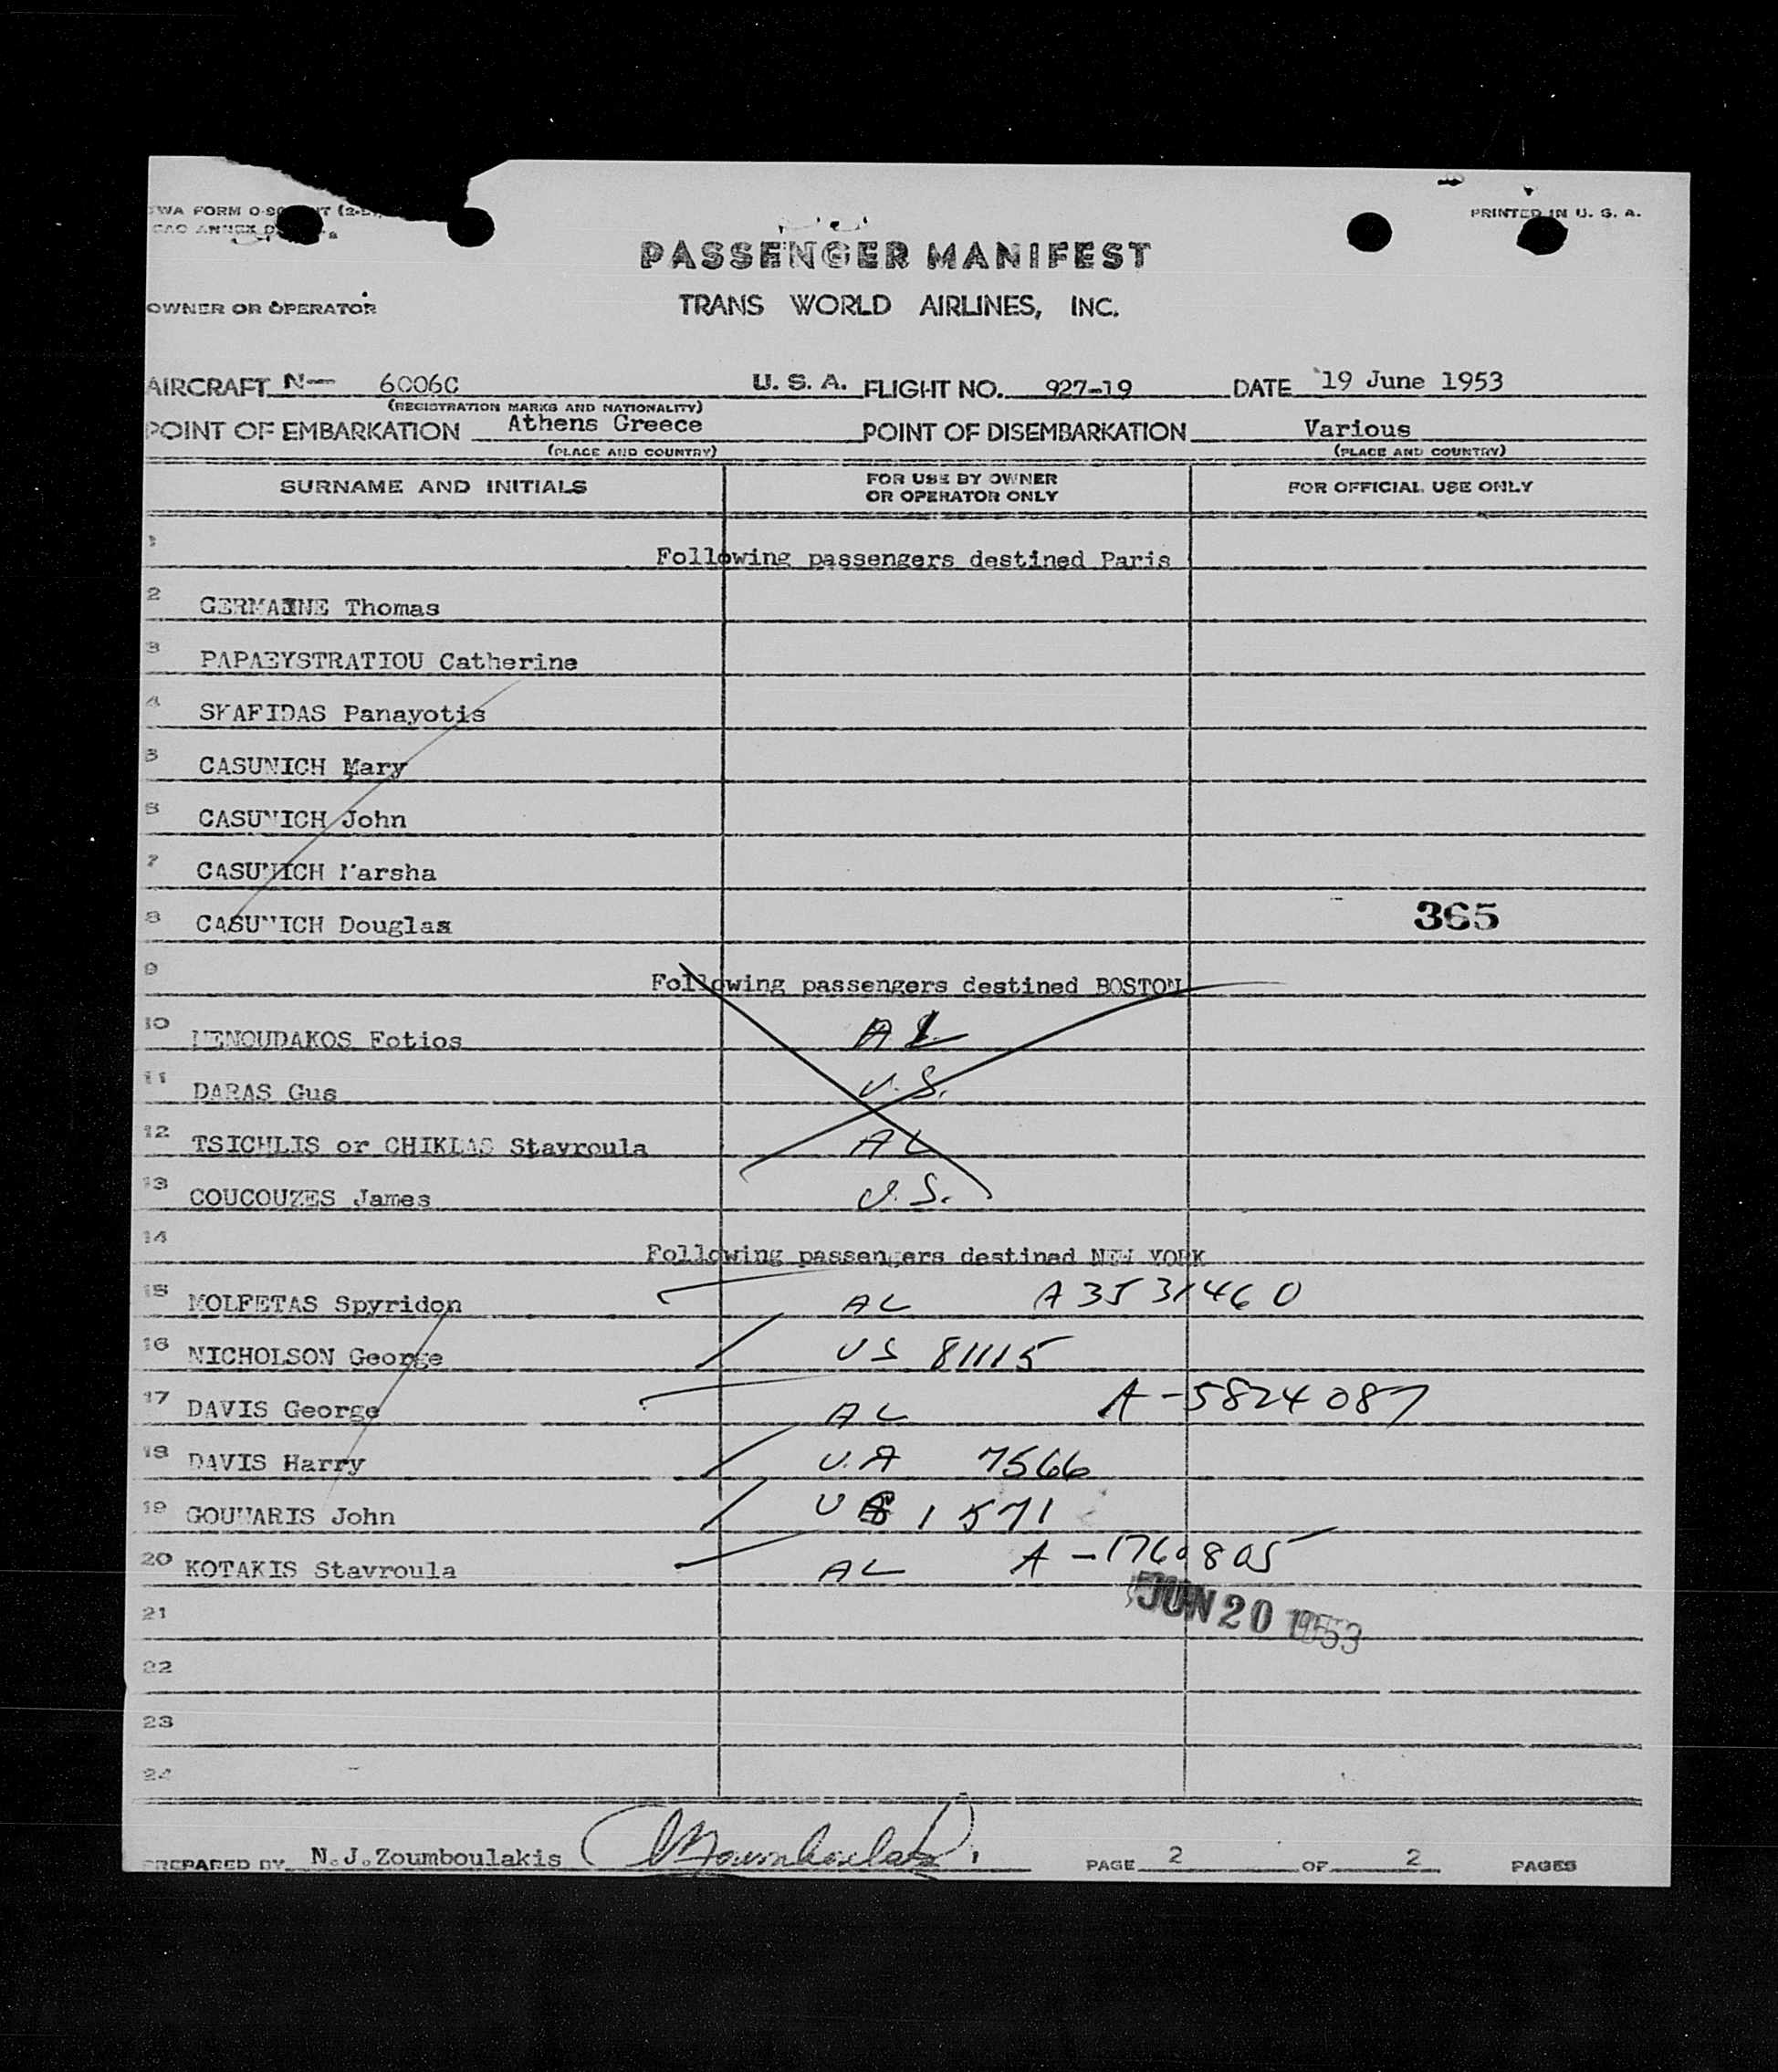 PRINTED IN U. S. A.
PASSENGER MANIFEST
OWNER OR OPERATOR TRANS WORLD AIRLINES, INC.
AIRCRAFT N— 6006C U. S. A. FLIGHT NO. 927-19 DATE 19 June 1953
(REGISTRATION MARKS AND NATIONALITY)
POINT OF EMBARKATION Athens Greece POINT OF DISEMBARKATION Various
(PLACE AND COUNTRY) (PLACE AND COUNTRY)
SURNAME AND INITIALS FOR USE BY OWNER OR OPERATOR ONLY FOR OFFICIAL USE ONLY
1 Following passengers destined Paris
2 GERMAINE Thomas
3 PAPAEYSTRATIOU Catherine
4 SKAFIDAS Panayotis
5 CASUNICH Mary
6 CASUNICH John
7 CASUNICH Marsha
8 CASUNICH Douglas 365
9 Following passengers destined BOSTON
10 MENOUDAKOS Fotios AL
11 DARAS Gus U.S.
12 TSICHLIS or CHIKLAS Stavroula AL
13 COUCOUZES James U.S.
14 Following passengers destined NEW YORK
15 MOLFETAS Spyridon AL A3531460
16 NICHOLSON George US 81115
17 DAVIS George AL A-5824087
18 DAVIS Harry U.A 7566
19 GOUNARIS John 1571
20 KOTAKIS Stavroula AL A-1760805
JUN 20 1953
21
22
23
24
PREPARED BY N.J.Zoumboulakis PAGE 2 OF 2 PAGES